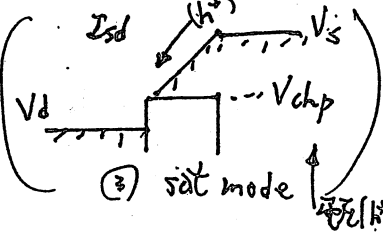 Isd
(h⁺)
Vs
Vd
Vchp
③ sat mode